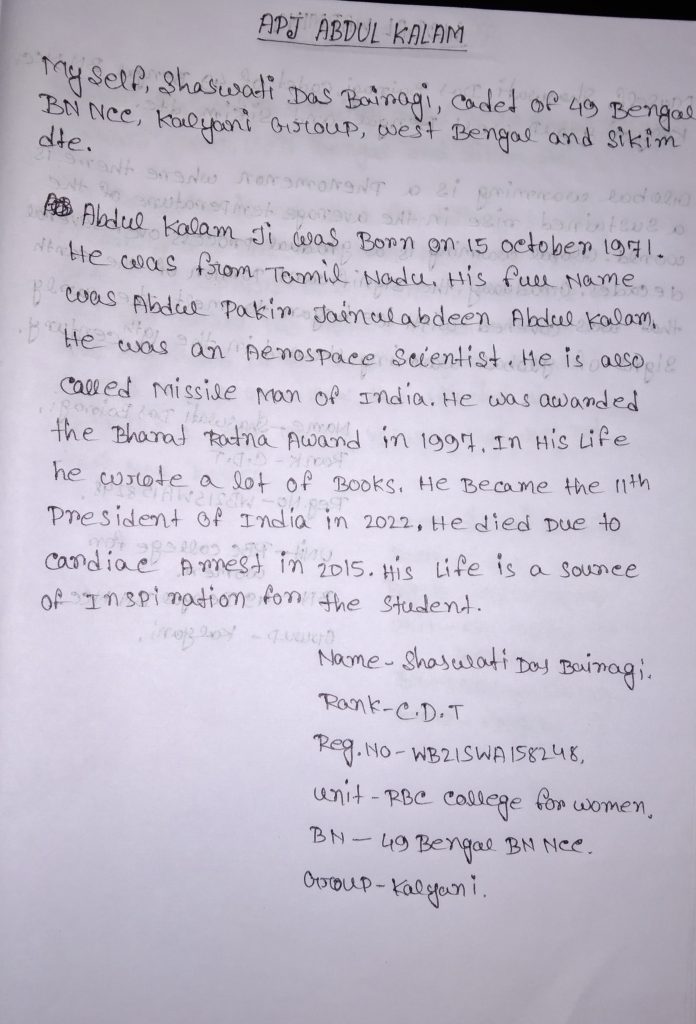 APJ ABDUL KALAM
Myself, Shaswati Das Bairagi, cadet of 49 Bengal
BN NCC, Kalyani Group, West Bengal and Sikim
dte.
Abdul Kalam Ji was Born on 15 october 1971.
He was from Tamil Nadu, His full Name
was Abdul Pakir Jainulabdeen Abdul Kalam.
He was an Aerospace Scientist. He is also
called Missile Man of India. He was awarded
the Bharat Ratna Award in 1997. In His Life
he wrote a lot of Books. He Became the 11th
President of India in 2022. He died Due to
Cardiac Arrest in 2015. His Life is a source
of Inspiration for the Student.
Name - Shaswati Das Bairagi.
Rank - C.D.T
Reg. No - WB21SWA158248,
Unit - RBC College for women.
BN - 49 Bengal BN NCC.
Group - Kalyani.